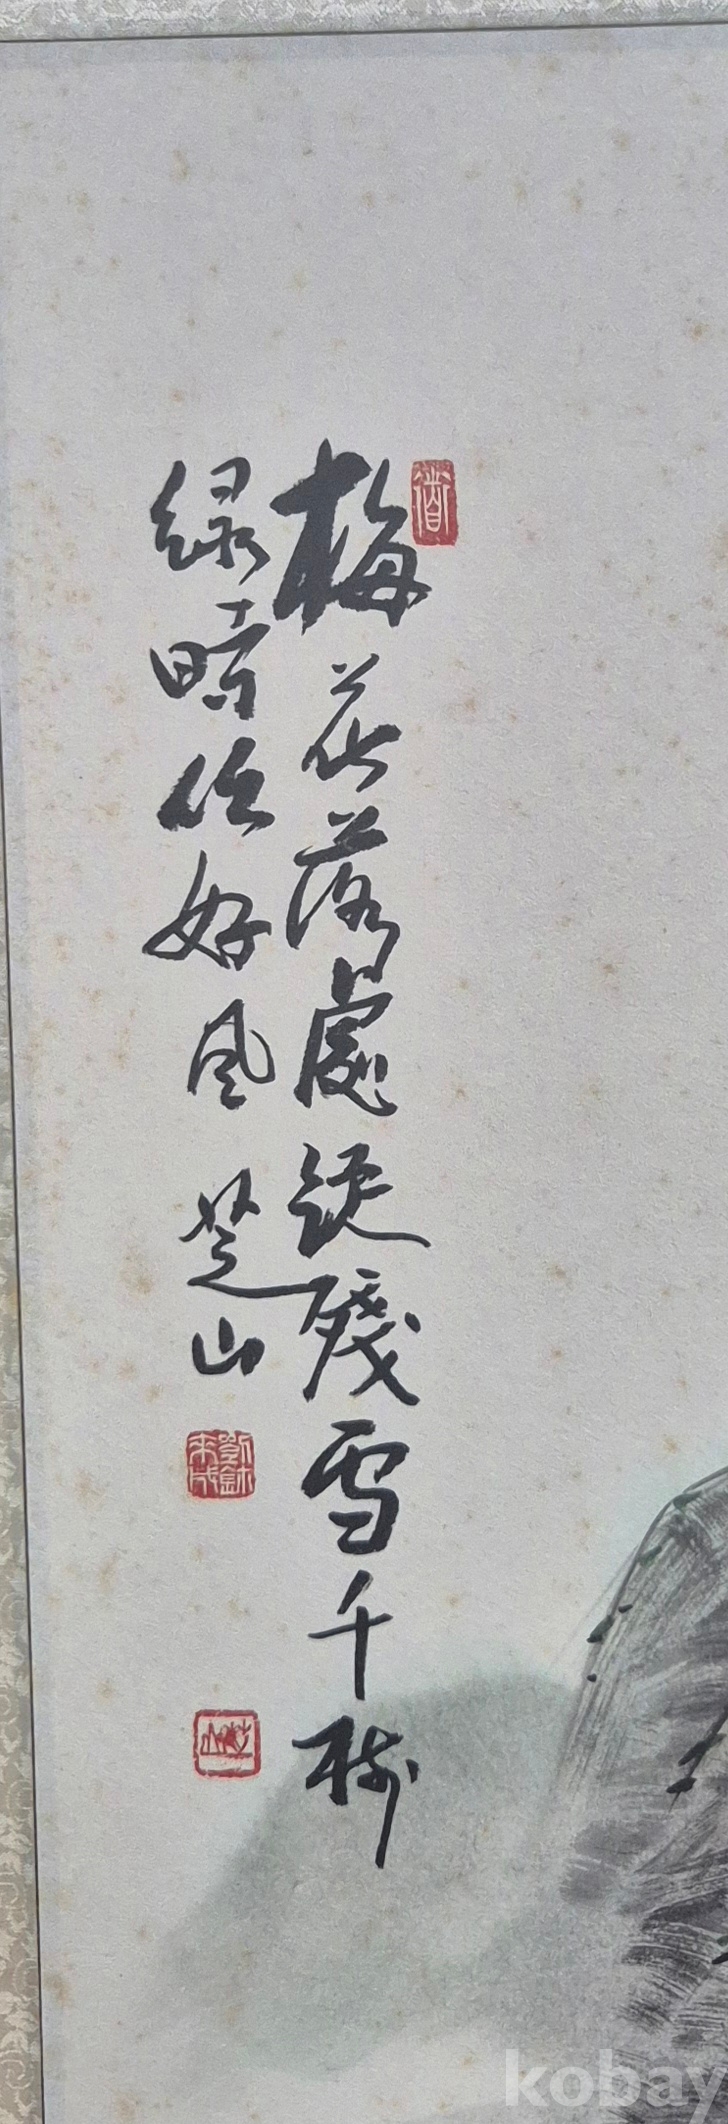 梅花落處疑殘雪千樹
綠時任好風 芝山
kobay